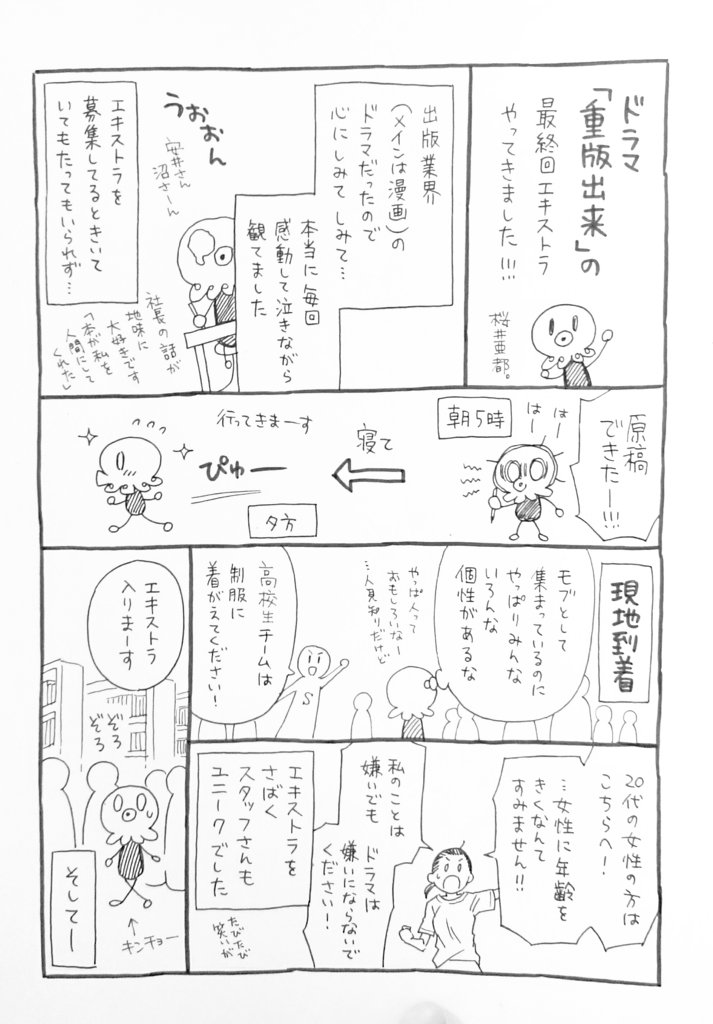 ドラマ
「重版出来」の
最終回エキストラ
やってきました!!!
桜井亜都。
出版業界
(メインは漫画)の
ドラマだったので
心にしみてしみて…
本当に毎回
感動して泣きながら
観てました
うおおん
安井さん
沼さーん
社長の話が
地味に
大好きです
「本が私を
人間にして
くれた」
エキストラを
募集してるときいて
いてもたってもいられず…
原稿
できたー!!!
はー
はー
朝5時
寝て
夕方
行ってきまーす
ぴゅー
現地到着
モブとして
集まっているのに
やっぱりみんな
いろんな
個性があるな
やっぱ人って
おもしろいなー
…人見知りだけど
高校生チームは
制服に
着がえてください!
S
20代の女性の方は
こちらへ!
…女性に年齢を
きくなんて
すみません!!
私のことは
嫌いでも
ドラマは
嫌いにならないで
ください!
エキストラを
さばく
スタッフさんも
ユニークでした
たびたび
笑いが
エキストラ
入りまーす
ぞろ
ぞろ
キンチョー
そしてー